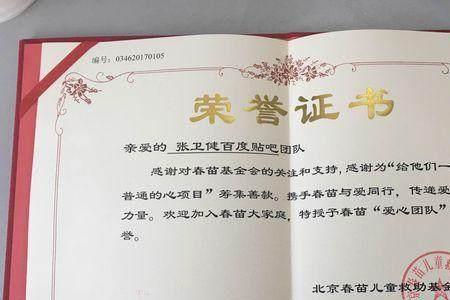 编号：034620170105
荣誉证书
亲爱的 张卫健百度贴吧团队
感谢对春苗基金会的关注和支持，感谢为“给他们一
普通的心项目”筹集善款。携手春苗与爱同行，传递爱
力量。欢迎加入春苗大家庭，特授予春苗“爱心团队”
誉。
北京春苗儿童救助基金
苗儿童救